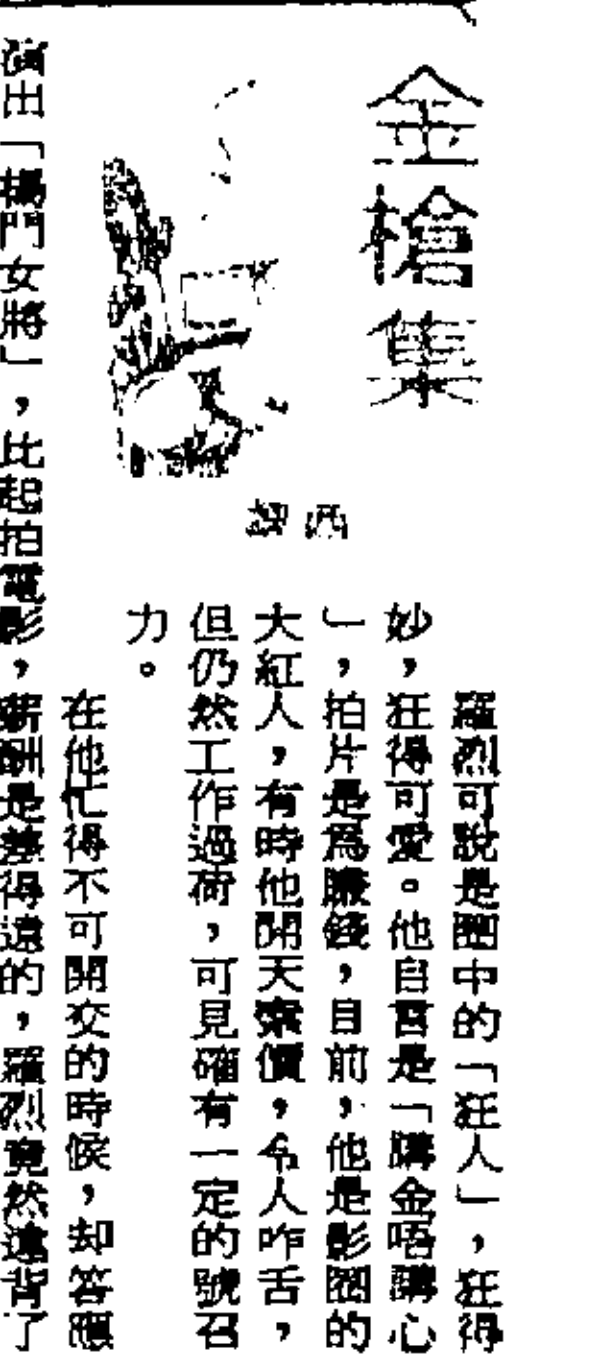 金槍集
西
羅烈可說是圈中的「狂人」，狂得
妙，狂得可愛。他自言是「講金唔講心
」，拍片是爲賺錢，目前，他是影圈的
大紅人，有時他開天索價，令人咋舌，
但仍然工作過荷，可見確有一定的號召
力。
在他忙得不可開交的時候，却答應
演出「楊門女將」，比起拍電影，薪酬是差得遠的，羅烈竟然違背了